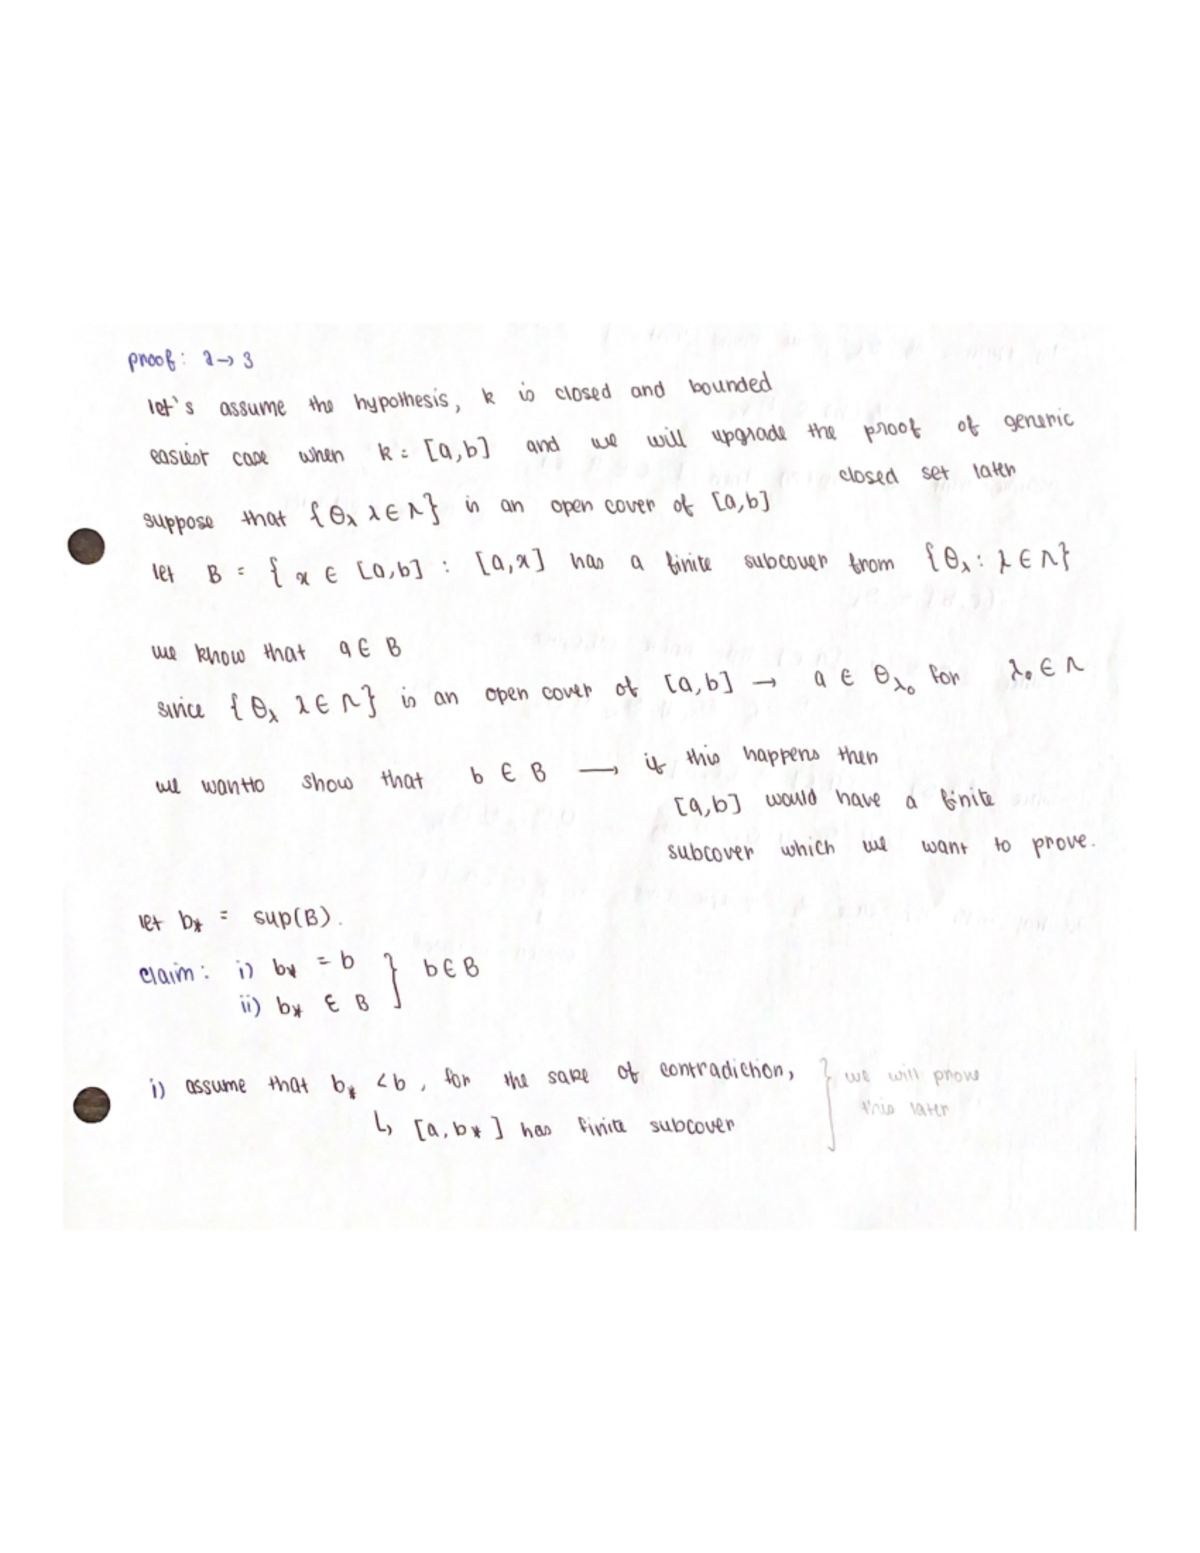 proof: 2→ 3
let's assume the hypothesis, k is closed and bounded
easiest case when k = [a,b] and we will upgrade the proof of generic
closed set later
suppose that {θλ λ∈Λ} is an open cover of [a,b]
let B = { x ∈ [a,b] : [a,x] has a finite subcover from {θλ : λ∈Λ}
we know that a∈B
since {θλ λ∈Λ} is an open cover of [a,b] → a ∈ θλ₀ for λ₀∈Λ
we want to show that b ∈ B → if this happens then
[a,b] would have a finite
subcover which we want to prove.
let b* = sup(B).
claim: i) b* = b } b∈B
ii) b* ∈ B
i) assume that b* < b, for the sake of contradiction, } we will prove
this later
↳ [a, b*] has finite subcover